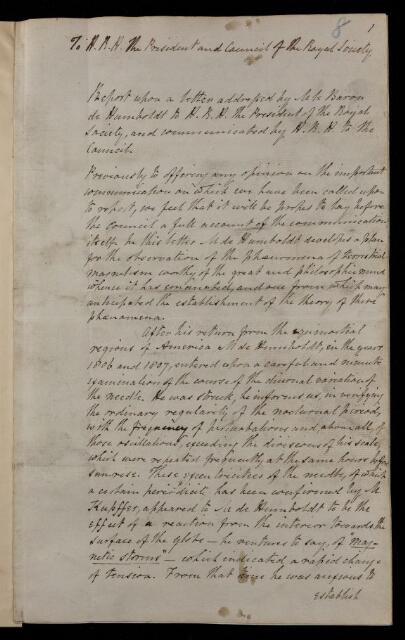 8
1
To H.R.H. The President and Council of the Royal Society
Report upon a letter addressed by M. le Baron
de Humboldt to H.R.H. The President of the Royal
Society, and communicated by H.R.H. to the
Council.
Previously to offering any opinion on the important
communication on which we have been called upon
to report, we feel that it will be proper to lay before
the council a full account of the communication
itself. In this letter M. de Humboldt develops a plan
for the observation of the phaenomena of terrestrial
magnetism worthy of the great and philosophic mind
whence it has emanated, and one from which may
anticipated the establishment of the theory of these
phaenomena.
After his return from the equinoctial
regions of America M. de Humboldt, in the years
1806 and 1807, entered upon a careful and minute
examination of the course of the diurnal variation of
the needle. He was struck, he informs us, in verifying
the ordinary regularity of the nocturnal period,
with the frequency of perturbations and, above all, of
those oscillations, exceeding the divisions of his scale,
which were repeated frequently at the same hours before
sunrise. These eccentricities of the needle, of which
a certain periodicity has been confirmed by M.
Kupffer, appeared to M. de Humboldt to be the
effect of a reaction from the interior towards the
surface of the globe – he ventures to say, of "mag-
netic storms" – which indicated a rapid change
of tension. From that time he was anxious to
establish